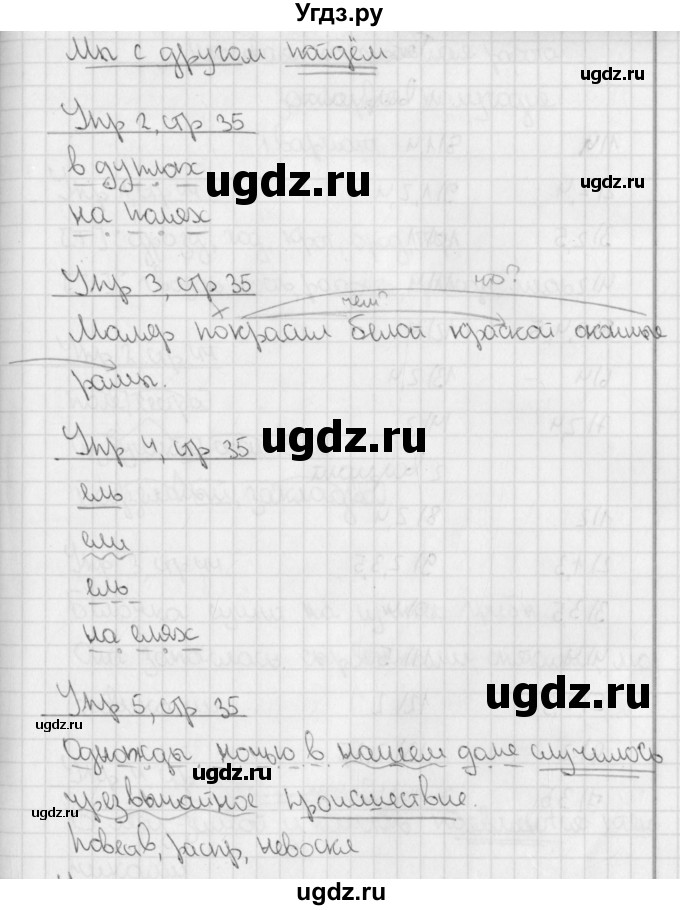 Угдз.ру
Мы с другом пойдём
ugdz.ru
Упр 2, стр 35
ugdz.ru
в дуплах
ugdz.ru
ugdz.ru
на полях
Упр 3, стр 35
что?
чем?
x
Маляр покрасил белой краской оконные
рамы.
ugdz.ru
Упр 4, стр 35
ель
ели
ель
на елях
ugdz.ru
Упр 5, стр 35
ugdz.ru
Однажды ночью в нашем доме случилось
чрезвычайное происшествие.
ugdz.ru
Повеств, распр, невоскл
ugdz.ru